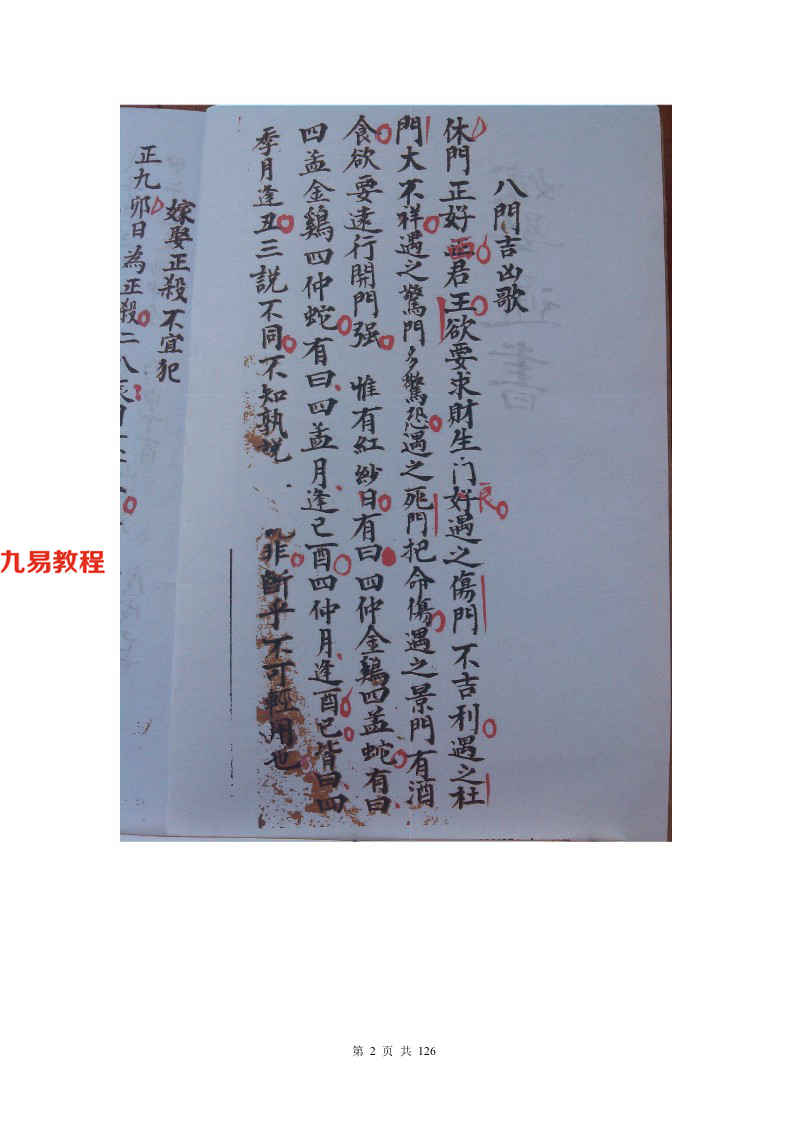 八門吉凶歌
休門正好面君王欲要求財生门好遇之傷門不吉利遇之杜
良
門大不祥遇之驚門多驚恐遇之死門把命傷遇之景門有酒
食欲要遠行開門强 惟有紅紗日有曰四仲金鷄四孟蛇有曰
四孟金鷄四仲蛇有曰四孟月逢巳酉四仲月逢酉巳皆曰四
季月逢丑三説不同不知孰説 非斷乎不可輕用也
嫁娶正殺不宜犯
正九卯日為正殺二八辰
九易教程
第 2 页 共 126